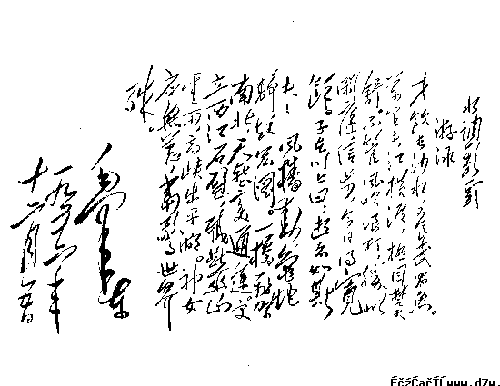 水调歌头
游泳
才饮长沙水，又食武昌鱼。
万里长江横渡，极目楚天
舒。不管风吹浪打，胜似
闲庭信步，今日得宽
馀。子在川上曰：逝者如斯
夫！风樯动，龟蛇
静，起宏图。一桥飞架
南北，天堑变通途。更
立西江石壁，截断巫山
云雨，高峡出平湖。神女
应无恙，当惊世界
殊。
毛泽东
一九五六年
十二月五日
www.d7w.